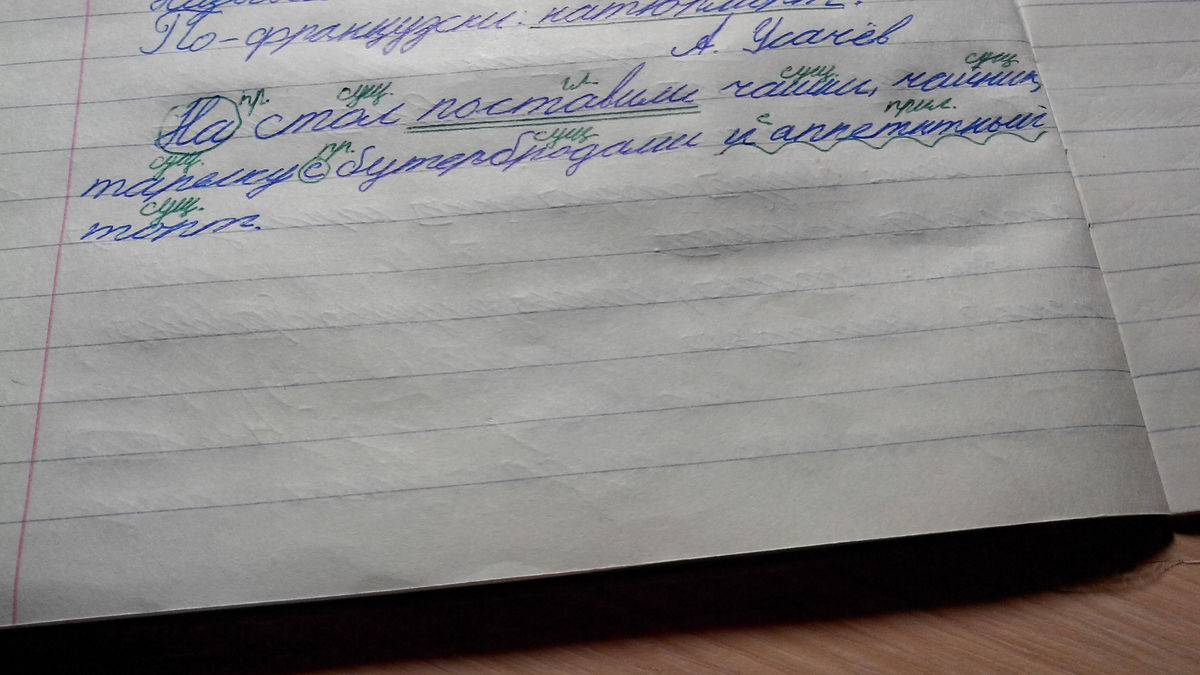 По-французски: натюрморт.
А. Усачёв
пр. сущ. гл. сущ. сущ.
На стол поставили чашки, чайник,
сущ. пр. сущ с прил.
тарелку с бутербродами и аппетитный
сущ.
торт.